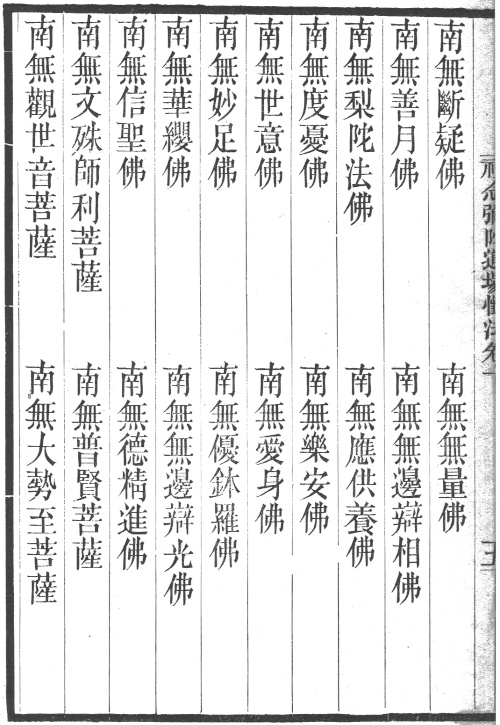 南無斷疑佛　南無無量佛
南無善月佛　南無無邊辯相佛
南無梨陀法佛　南無應供養佛
南無度憂佛　南無樂安佛
南無世意佛　南無愛身佛
南無妙足佛　南無優鉢羅佛
南無華纓佛　南無無邊辯光佛
南無信聖佛　南無德精進佛
南無文殊師利菩薩　南無普賢菩薩
南無觀世音菩薩　南無大勢至菩薩